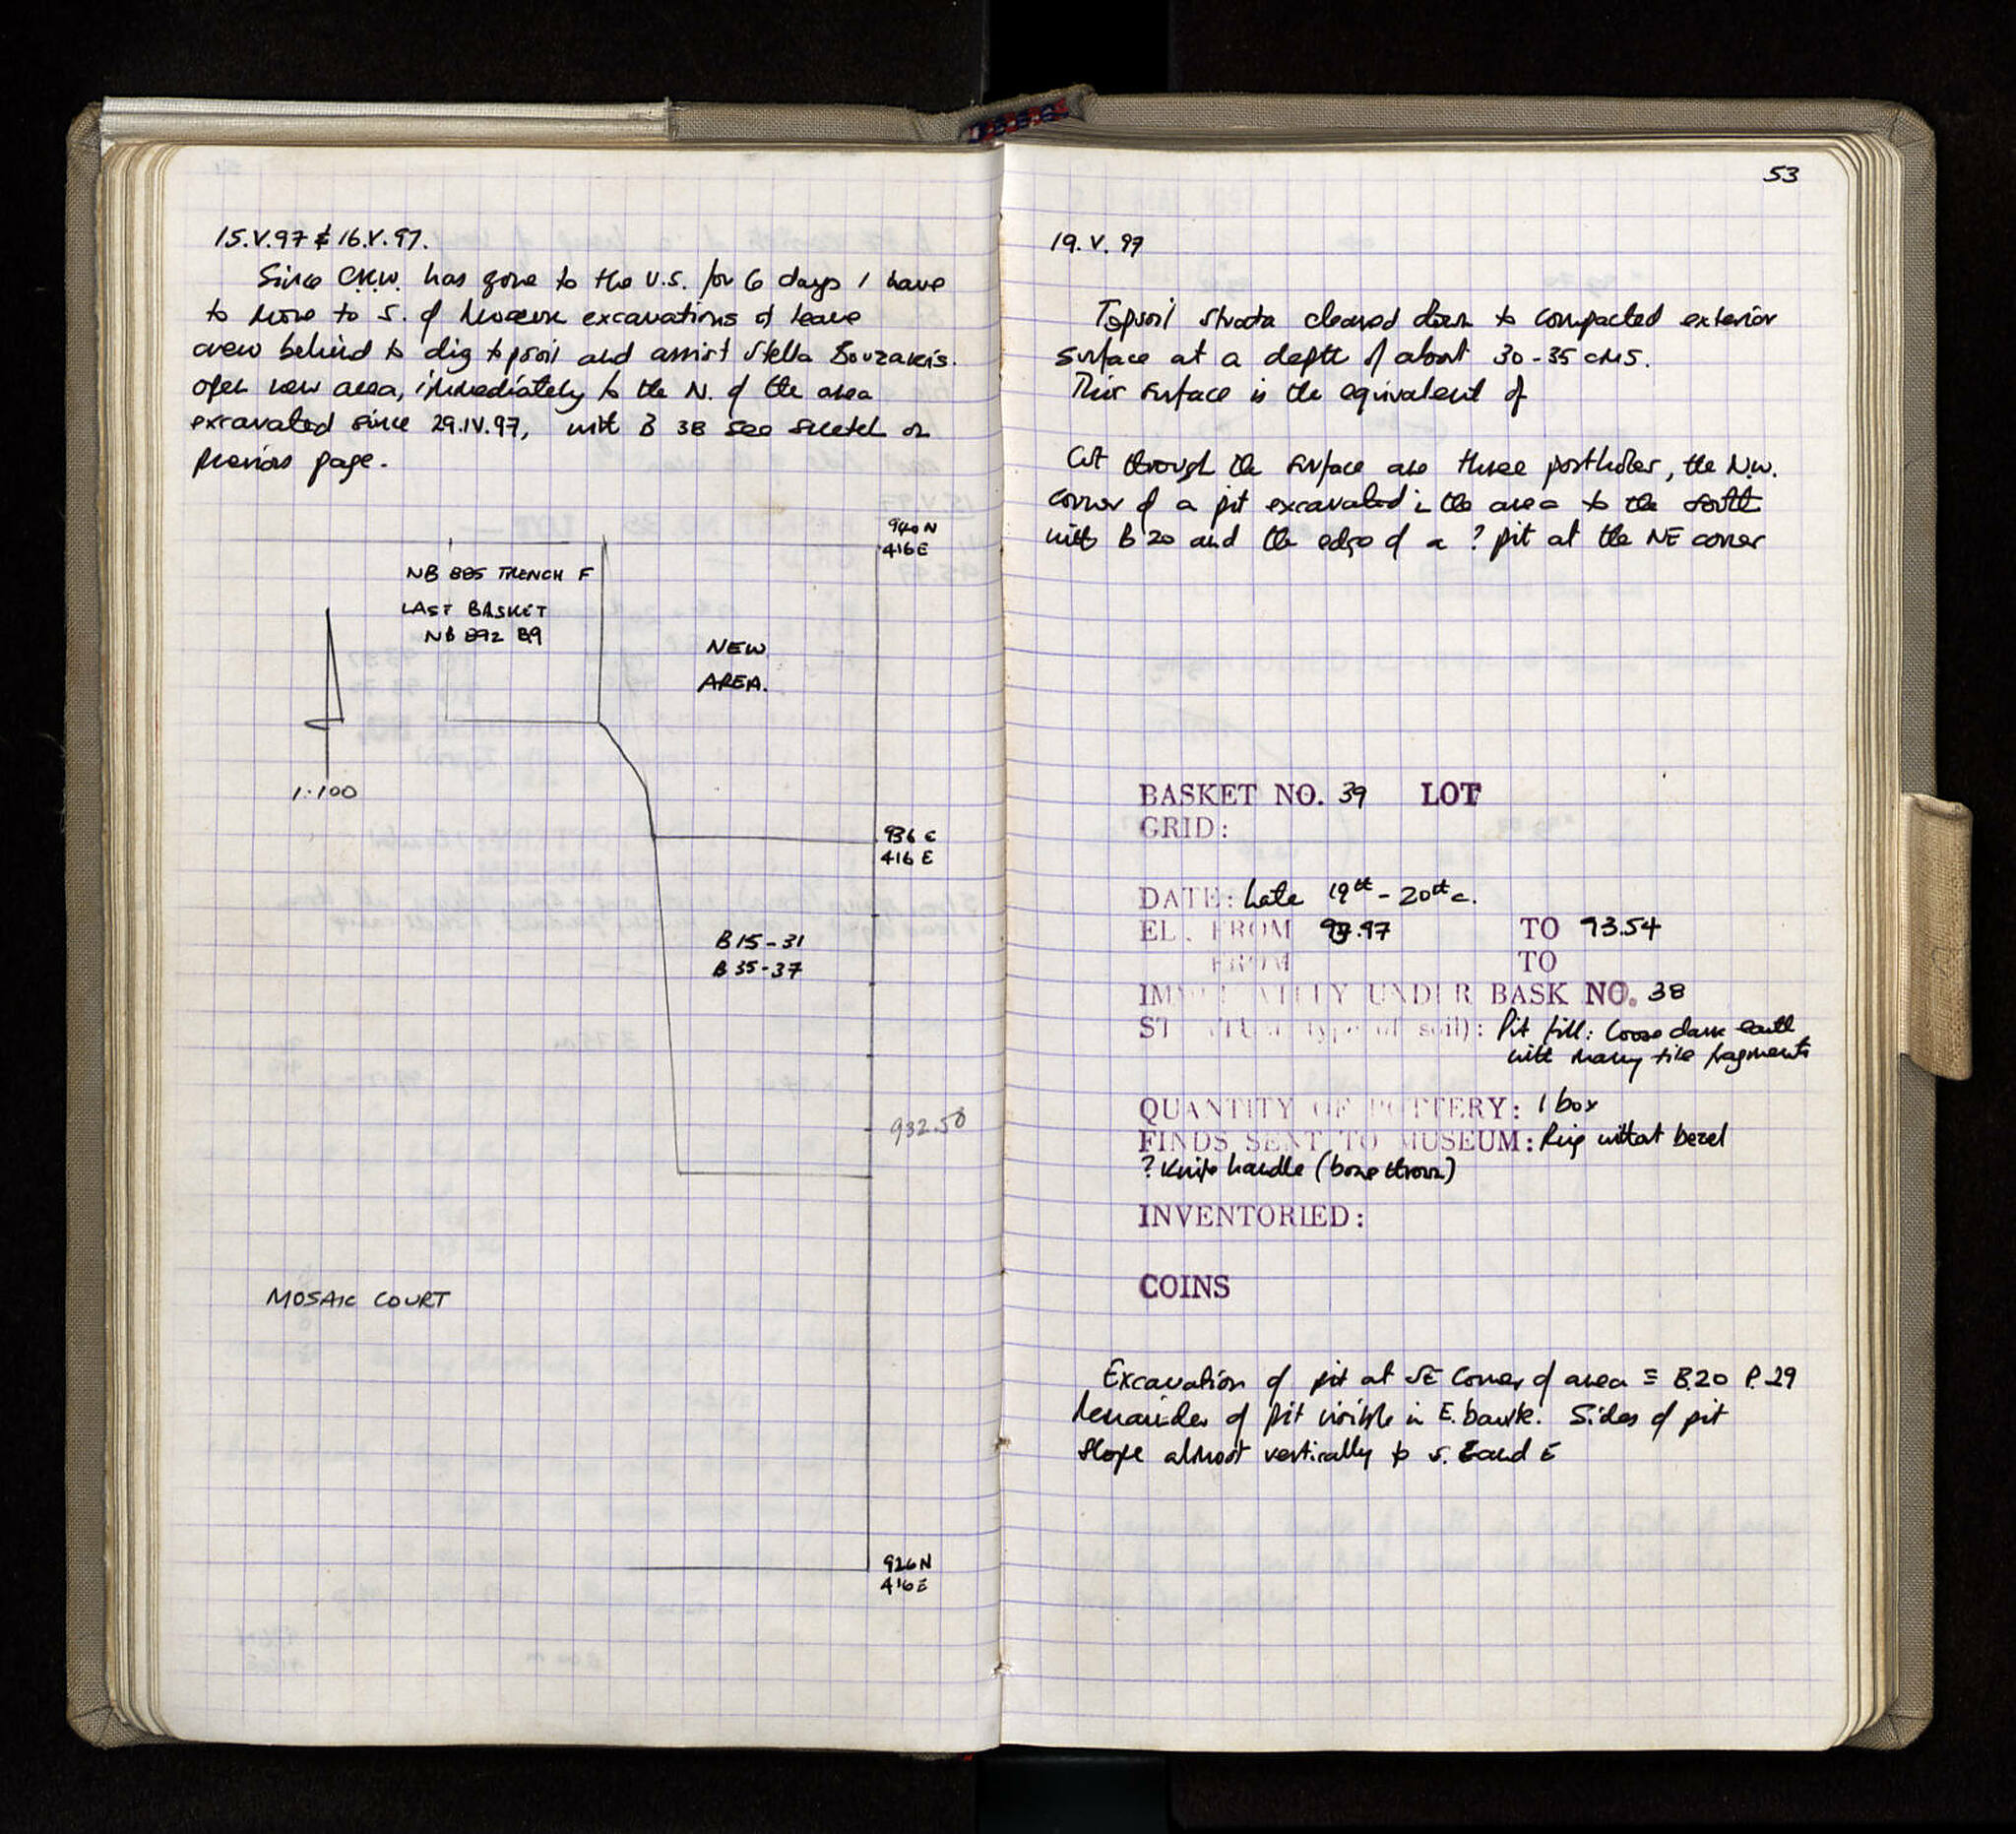 15.V.97 & 16.V.97.
Since C.K.W. has gone to the U.S. for 6 days I have
to move to S. of excavations & leave
crew behind to dig topsoil and assist Stella Bouzakis.
Open new area, immediately to the N. of the area
excavated since 29.IV.97, with B 38 see sketch on
previous page.
940 N
416 E
NB 885 TRENCH F
LAST BASKET
NB 892 B9
NEW
AREA.
1:100
936 E
416 E
B 15-31
B 35-37
932.50
MOSAIC COURT
926 N
416 E
53
19. V. 97
Topsoil strata cleared down to compacted exterior
surface at a depth of about 30-35 cms.
This surface is the equivalent of
Cut through the surface are three postholes, the N.W.
corner of a pit excavated in the area to the south
with B 20 and the edge of a ? pit at the NE corner
BASKET NO. 39 LOT
GRID:
DATE: Late 19th - 20th c.
EL. FROM 93.97 TO 93.54
FROM TO
IMMEDIATELY UNDER BASK NO. 38
STRATUM (type of soil): Pit fill: loose dark earth
with many tile fragments
QUANTITY OF POTTERY: 1 box
FINDS SENT TO MUSEUM: Ring without bezel
? Knife handle (bone thrown)
INVENTORIED:
COINS
Excavation of pit at SE Corner of area ≡ B.20 P.29
Remainder of pit visible in E. baulk. Sides of pit
slope almost vertically to S. and E